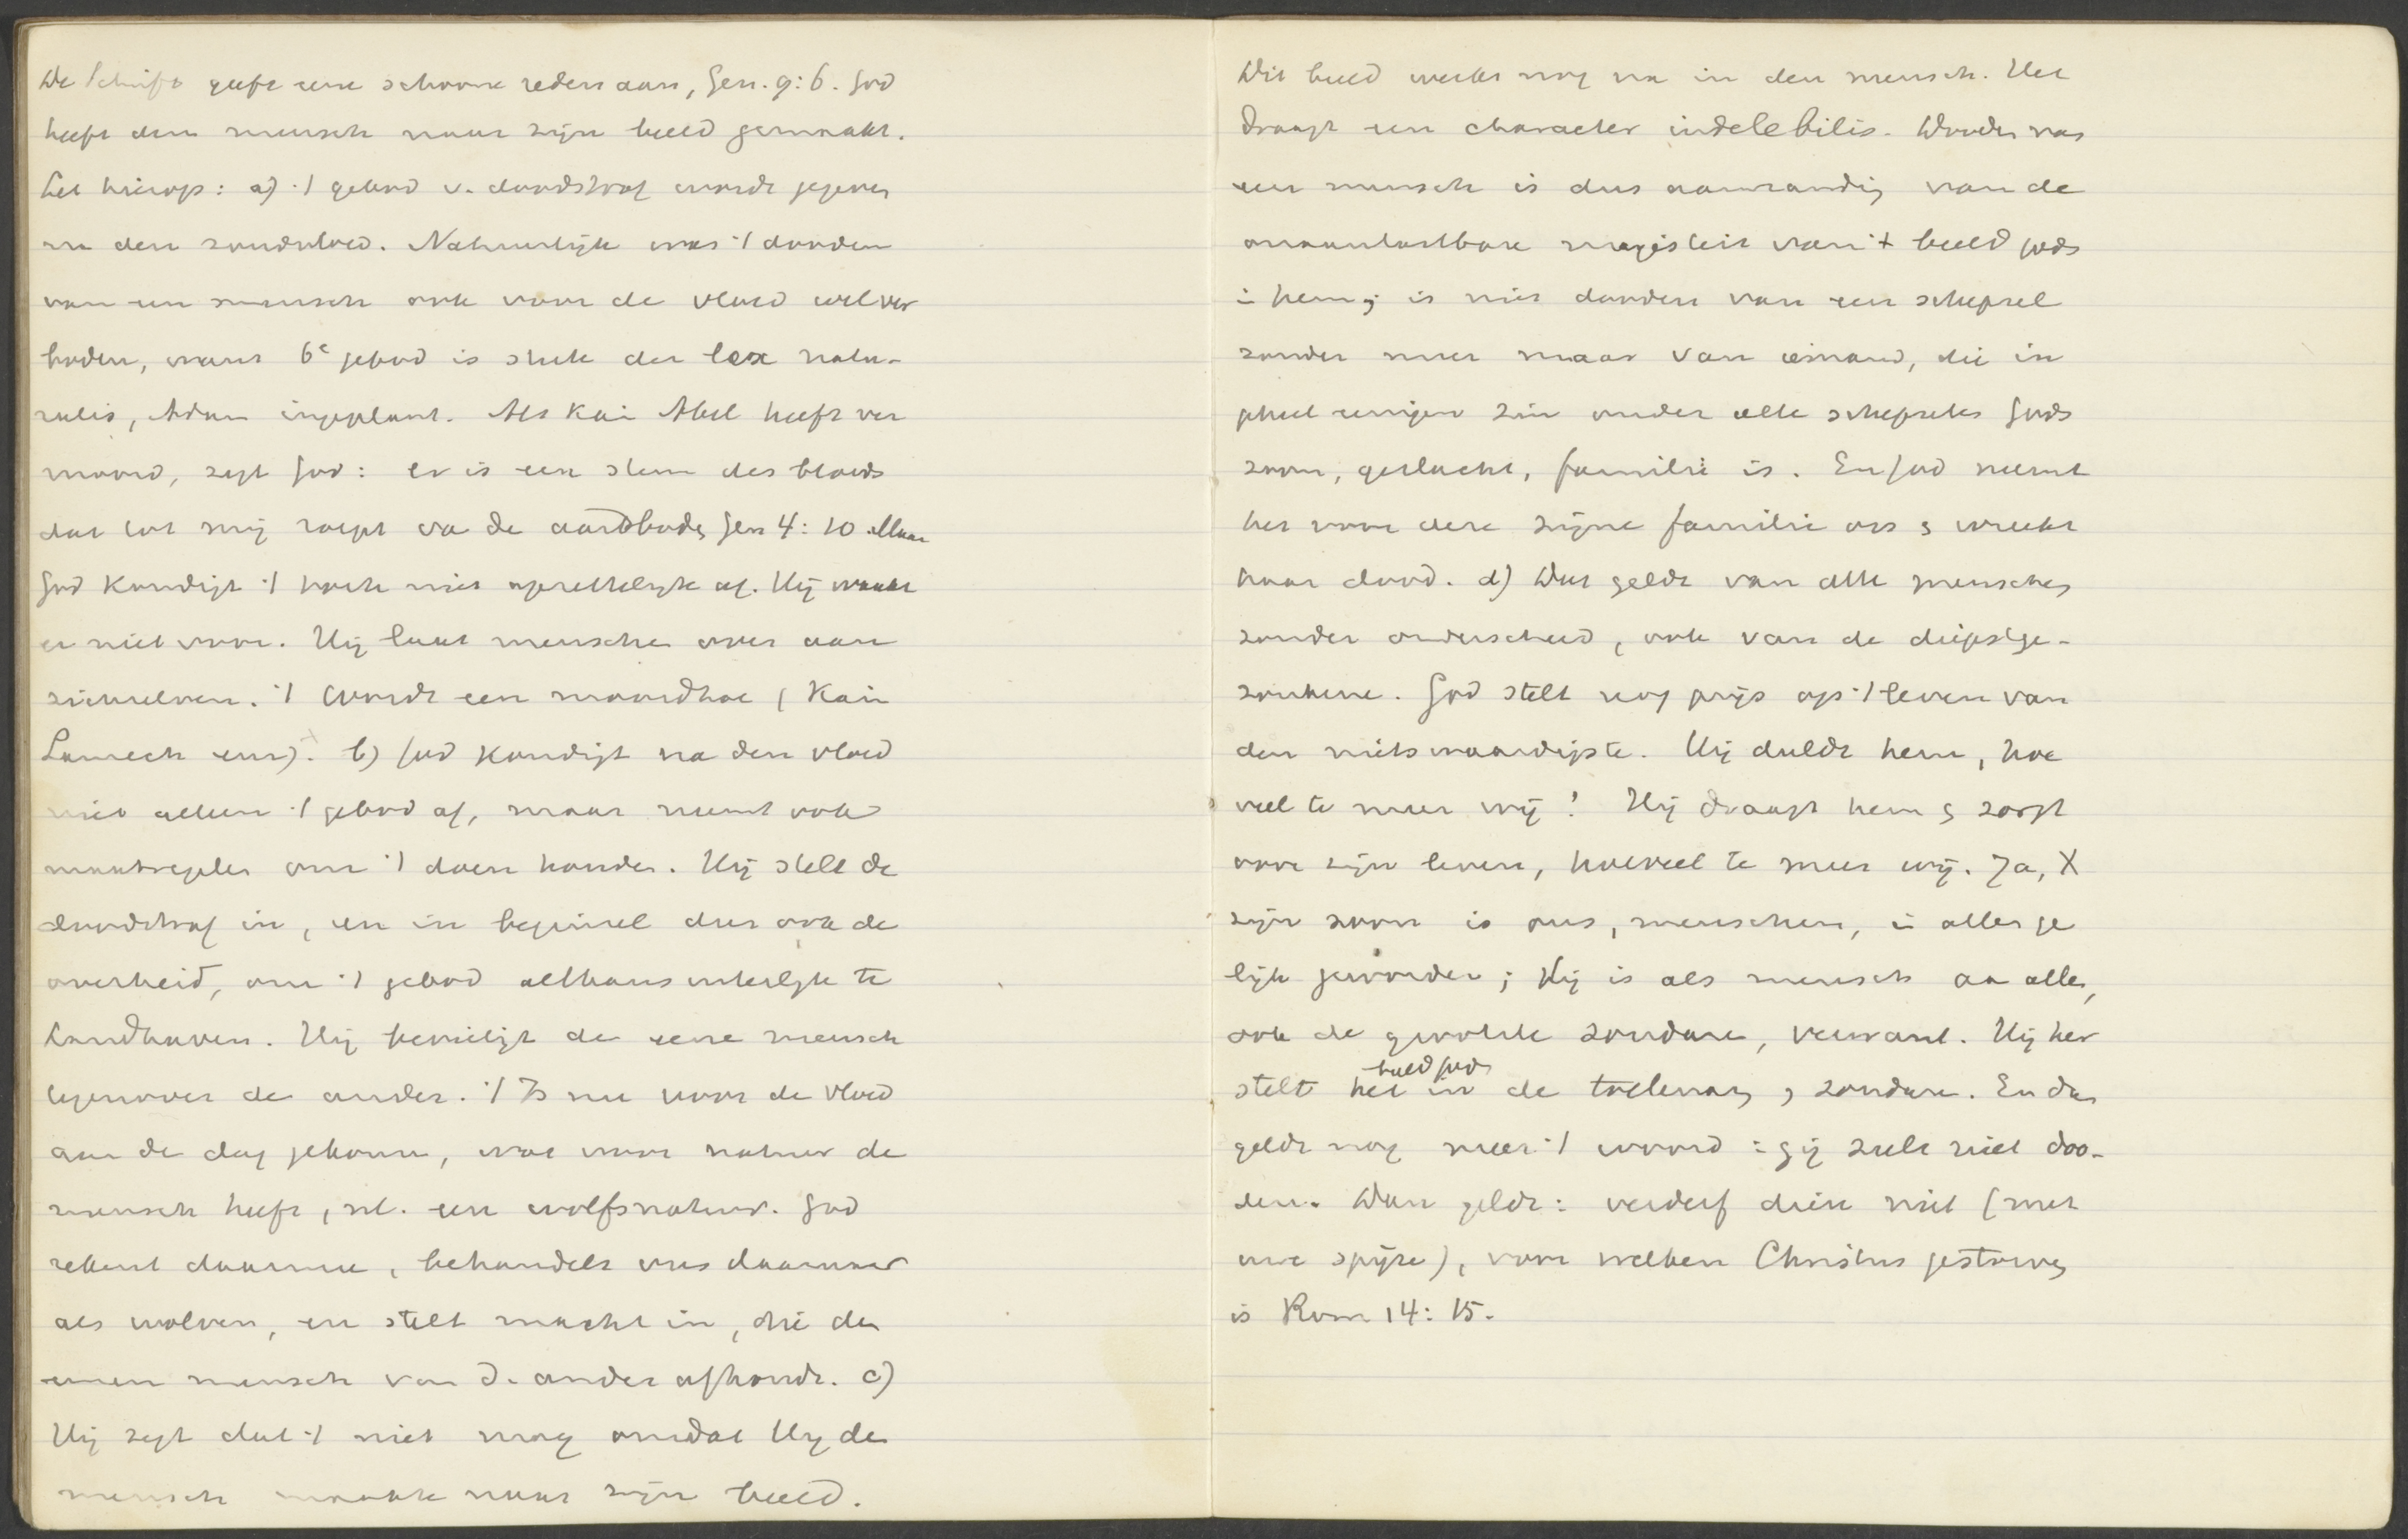 De Schrift geeft eene schoone reden aan, Gen. 9:6. God
heeft den mensch naar zijn beeld gemaakt.
Let hierop: a) 't gebod v. doodstraf wordt gegeven
na den zondvloed. Natuurlijk was 't dooden
van een mensch ook voor de vloed wel ver
boden, want 6e gebod is stuk der lex natu-
ralis, Adam ingeplant. Als Kain Abel heeft ver
moord, zegt God: er is een stem des bloeds
dat tot mij roept van de aardbodem Gen 4:10. Maar
God kondigt 't noch niet opzettelijk af. Hij waakt
er niet voor. Hij laat menschen over aan
zichzelven. 't Wordt een moordhol (Kain
Lamech enz). b) God kondigt na den vloed
niet alleen 't gebod af, maar neemt ook
maatregelen om 't doen houden. Hij stelt de
doodstraf in, en in beginsel dus ook de
overheid, om 't gebod althans uiterlijk te
handhaven. Hij beveiligt de eene mensch
tegenover de ander. 't Is nu voor de vloed
aan de dag gekomen, wat voor natuur de
mensch heeft, nl. een wolfsnatuur. God
rekent daarmee, behandelt ons daarnaar
als wolven, en stelt macht in, die den
eenen mensch van de ander afhoudt. c)
Hij zegt dat 't niet mag omdat Hij den
mensch maakte naar zijn beeld.
Dit beeld werkt nog na in den mensch. Het
draagt een character indelebilis. Dooden van
een mensch is dus aanranding van de
onaantastbare majesteit van 't beeld Gods
in hem; is niet dooden van een schepsel
zonder meer maar van iemand, die in
geheel eenigen zin onder alle schepselen Gods
zoon, geslacht, familie is. En God neemt
het voor deze zijne familie op en wreekt
haar dood. d) Dat geldt van alle menschen
zonder onderscheid, ook van de diepstge-
zonkene. God stelt nog prijs op 't leven van
den nietswaardigste. Hij duldt hem, hoe
veel te meer wij! Hij draagt hem en zorgt
voor zijn leven, hoeveel te meer wij. Ja, X
zijn zoon is ons, menschen, in alles ge
lijk geworden; Hij is als mensch aan allen,
ook de grootste zondaren, verwant. Hij her
stelt het beeld Gods in de tollenaars en zondaren. En dan
geldt nog meer 't woord: gij zult niet doo-
den. Dan geldt: verderf dien niet (met
uwe spijze), voor welken Christus gestorven
is Rom 14:15.